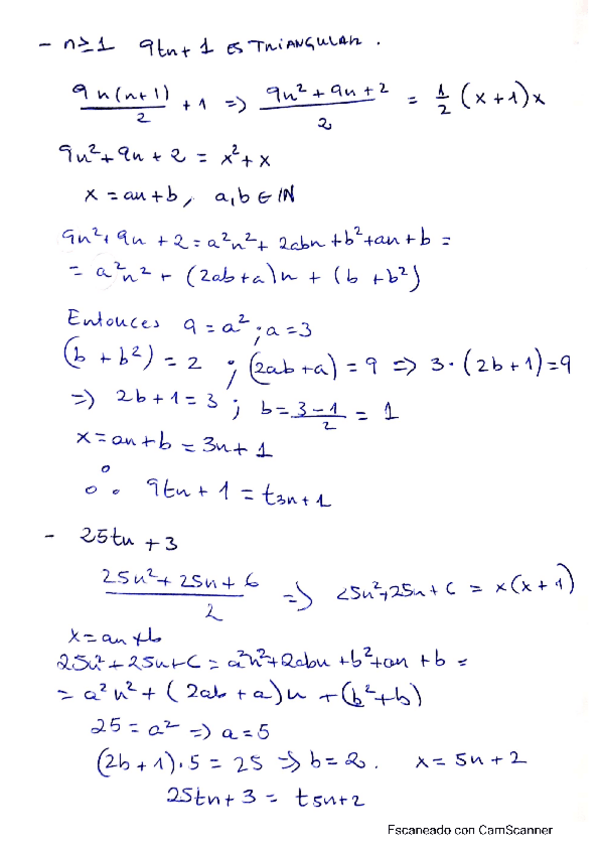 - n≥1 9tn+1 es TRIANGULAR.
9n(n+1)/2 + 1 => (9n²+9n+2)/2 = 1/2 (x+1)x
9n²+9n+2 = x²+x
x = an+b, a,b ∈ IN
9n²+9n+2 = a²n²+2abn+b²+an+b =
= a²n² + (2ab+a)n + (b+b²)
Entonces 9 = a²; a=3
(b+b²) = 2 ; (2ab+a) = 9 => 3·(2b+1)=9
=> 2b+1=3 ; b = (3-1)/2 = 1
x = an+b = 3n+1
∴ 9tn+1 = t3n+1
- 25tn+3
(25n²+25n+6)/2 => 25n²+25n+6 = x(x+1)
x = an+b
25n²+25n+6 = a²n²+2abn+b²+an+b =
= a²n²+(2ab+a)n+(b²+b)
25 = a² => a=5
(2b+1)·5 = 25 => b=2. x = 5n+2
25tn+3 = t5n+2
Escaneado con CamScanner